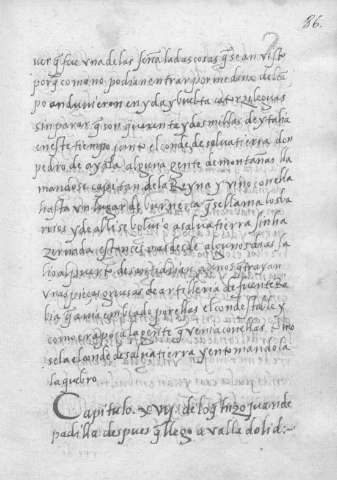 86.
ver q̃ fue vna de las señaladas cosas q̃ se an visto
porq̃ como no podian entrar por medina de
po anduvieron en yda y buelta catorze leguas
sin parar q̃ son quarenta y dos millas de ytalia
en este tiempo junto el conde de saluatierra don
pedro de ayala alguna gente de montañas lla
mandose capitan de la Reyna y vino con ella
hasta vn lugar de burueva q̃ se llama
y de alli se boluio a saluatierra sin ha
zer nada estonces mas desde algunos dias sa
lio al puerto de q̃ trayan
vnas pieças gruesas de artelleria de fuente Ra
bia q̃ avia embiado por ellas el condestable y
como era poca la gente q̃ venia con ellas
sela el conde de saluatierra y en tomandola
la quebro
Capitulo. de lo q̃ hizo juan de
padilla despues q̃ llego a valladolid:-